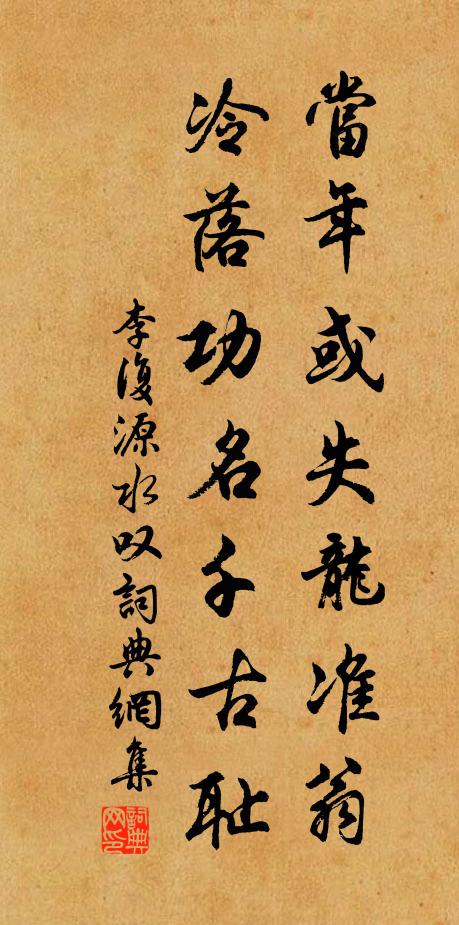 當年或失龍准翁
冷落功名千古耻
李復源水叹詞典網集
詞典网印